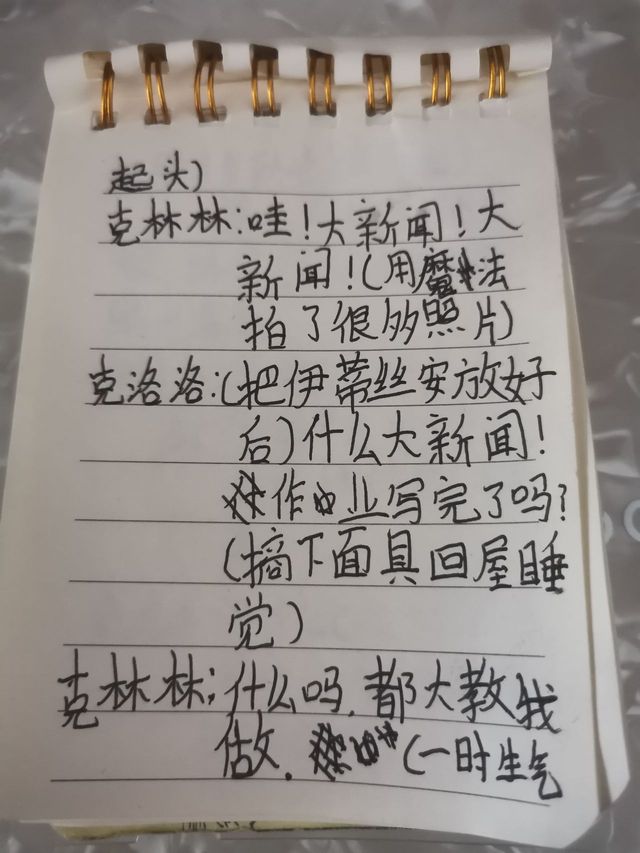 起头)
克林林:哇!大新闻!大
新闻!(用魔法
拍了很多照片)
克洛洛:(把伊蒂丝安放好
后)什么大新闻!
作业写完了吗?
(摘下面具回屋睡
觉)
克林林:什么吗.都大教我
做.(一时生气